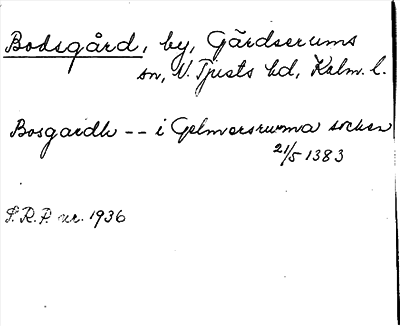 Bodsgård, by, Gärdserums
sn, N. Tjusts hd, Kalm. l.
Bosgardh -- i Gelmersrwma socken
21/5 1383
S.R.P. nr. 1936